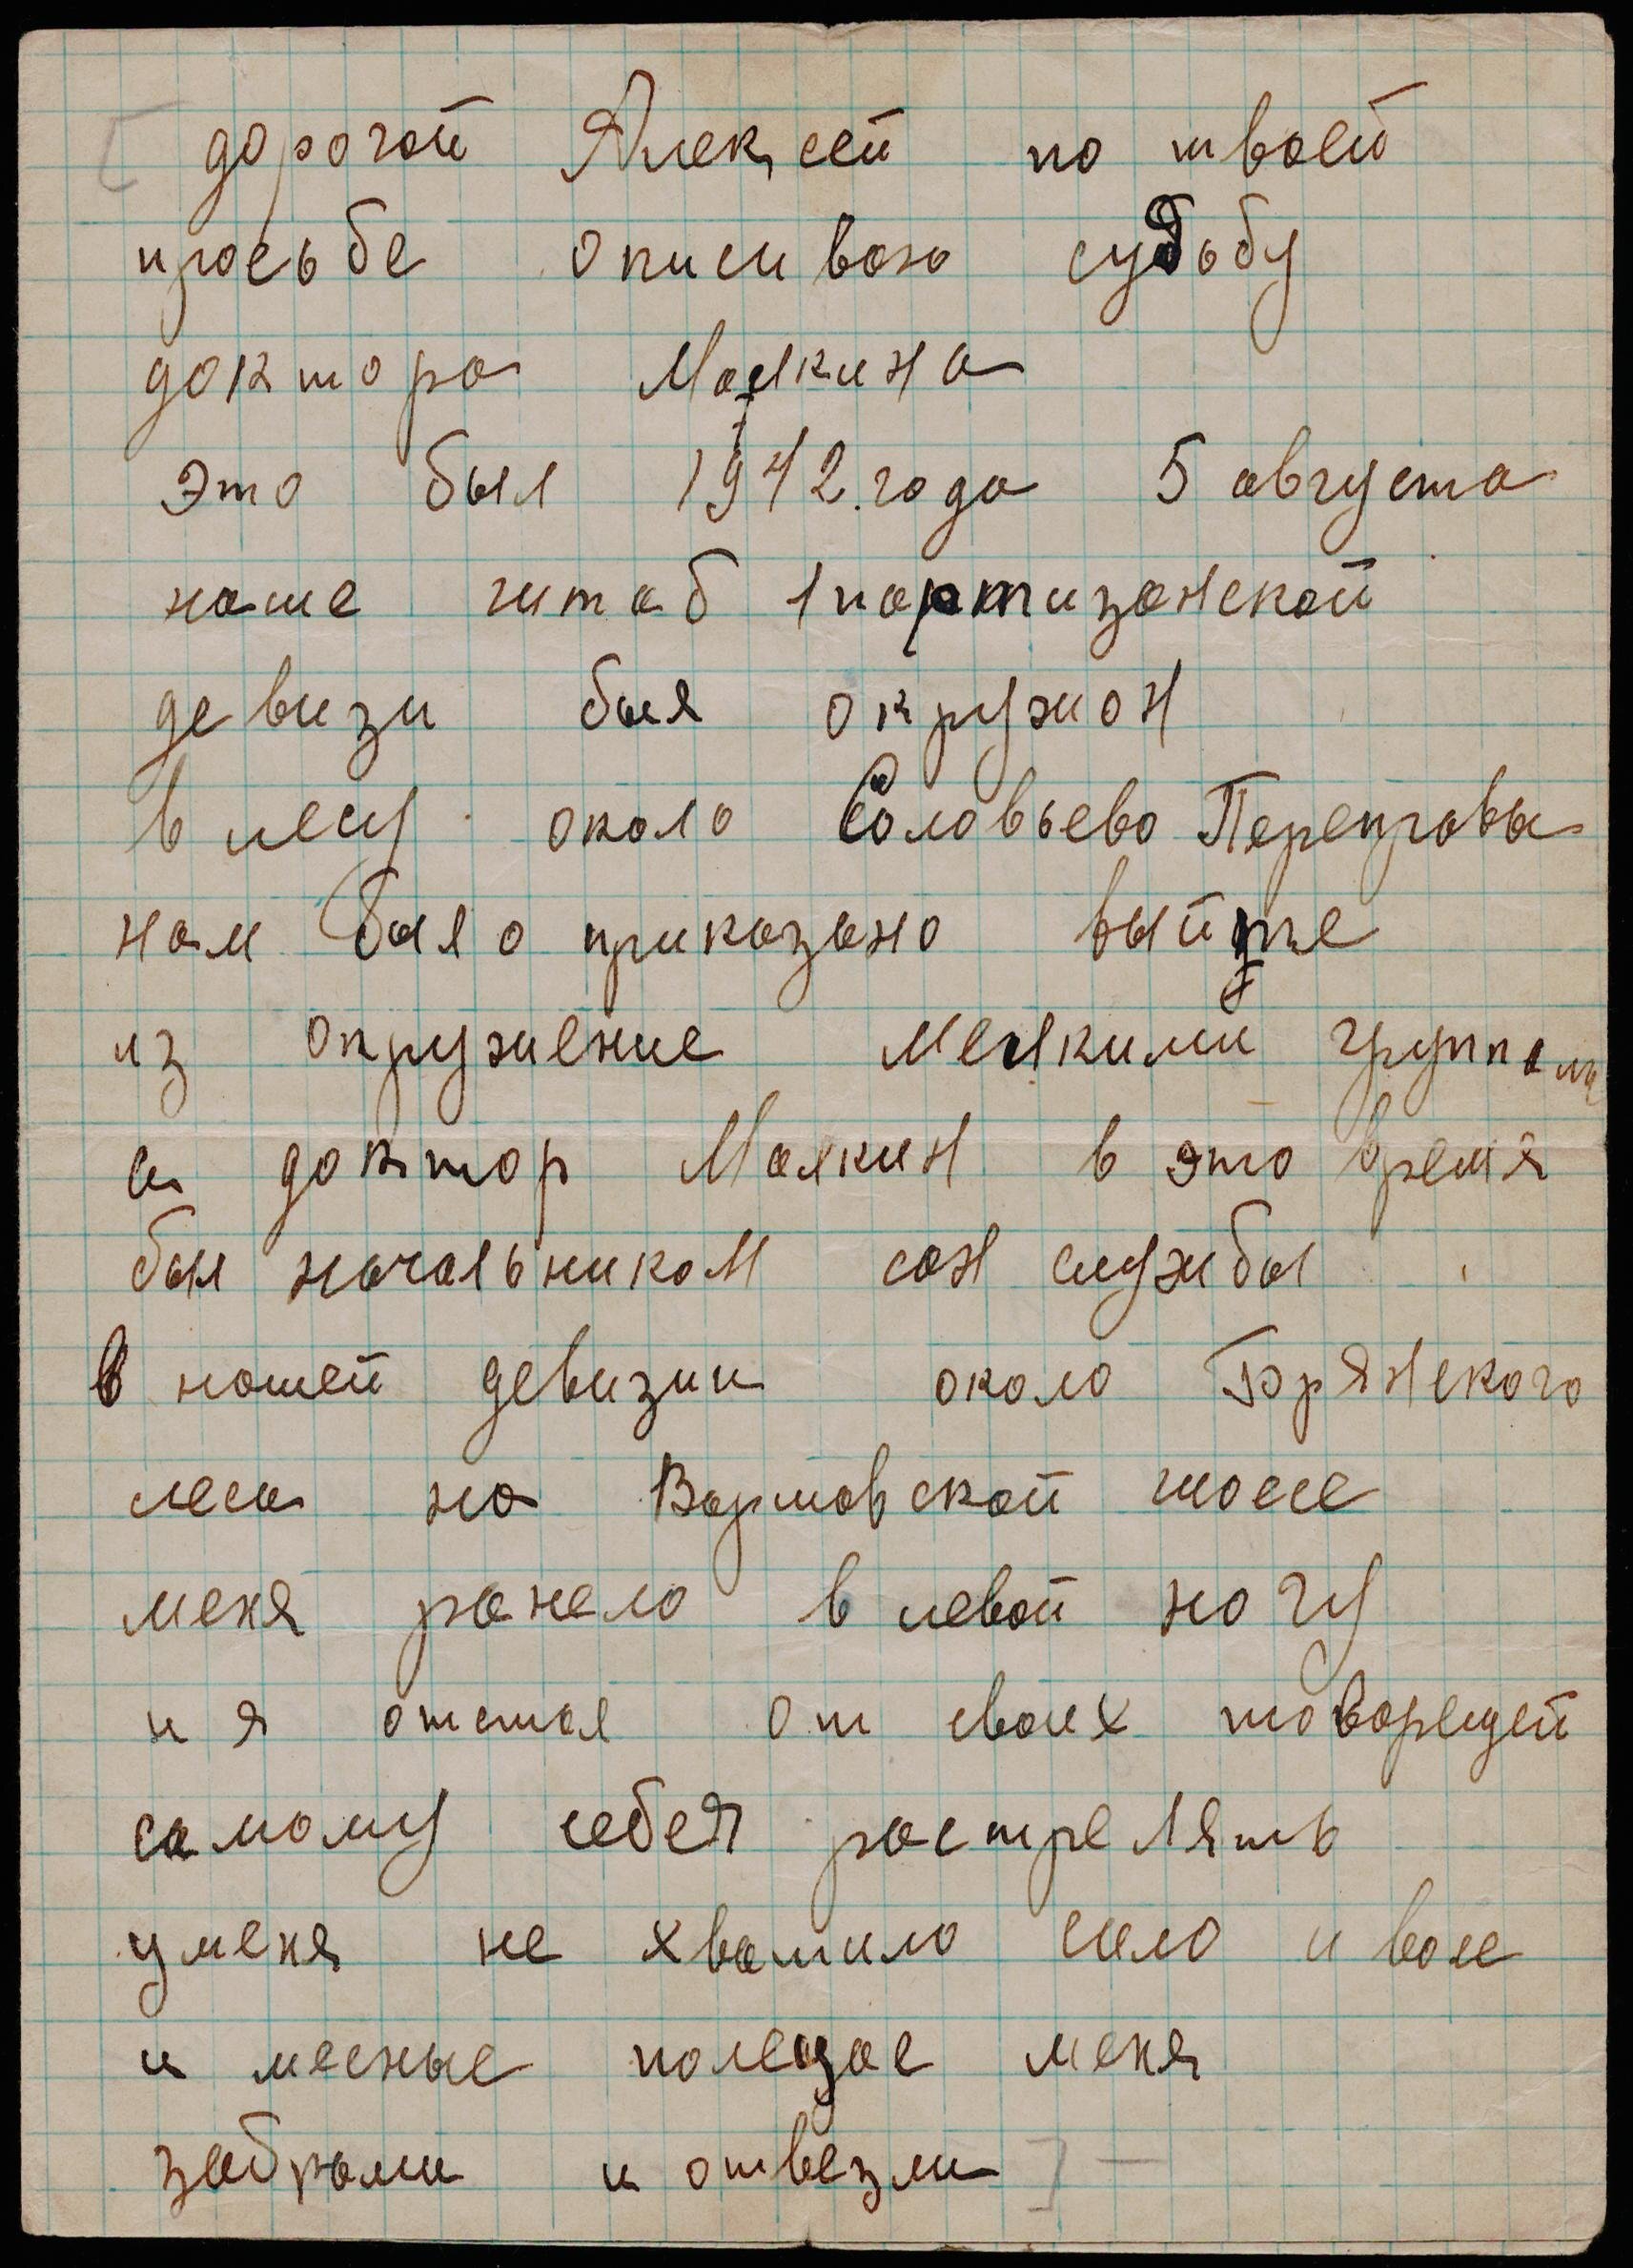 [ дорогой Алексей по твоей
просьбе описиваю судьбу
доктора Малкина
Это был 1942 года 5 августа
наше штаб 1 партизанской
девизи был окружон
в лесу около Соловьево Переправы
нам было приказано выйте
из окружение мелкими группами
а доктор Малкин в это время
был начальником сан службы
в нашей девизии около Брянского
леса на Варшавской шосе
меня ранело в левой ногу
и я отстал от своих товарещей
самому себея растрелять
у меня не хватило сило и воле
и месные полецае меня
забрали и отвезли ] —